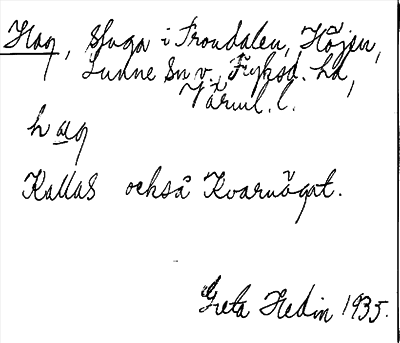 Hag, stuga i Trondalen, Höjen,
Sunne Sn v., Fryksd. hd,
Värml. l.
hag
Kallas också Kvarnägat.
Greta Hedin 1935.